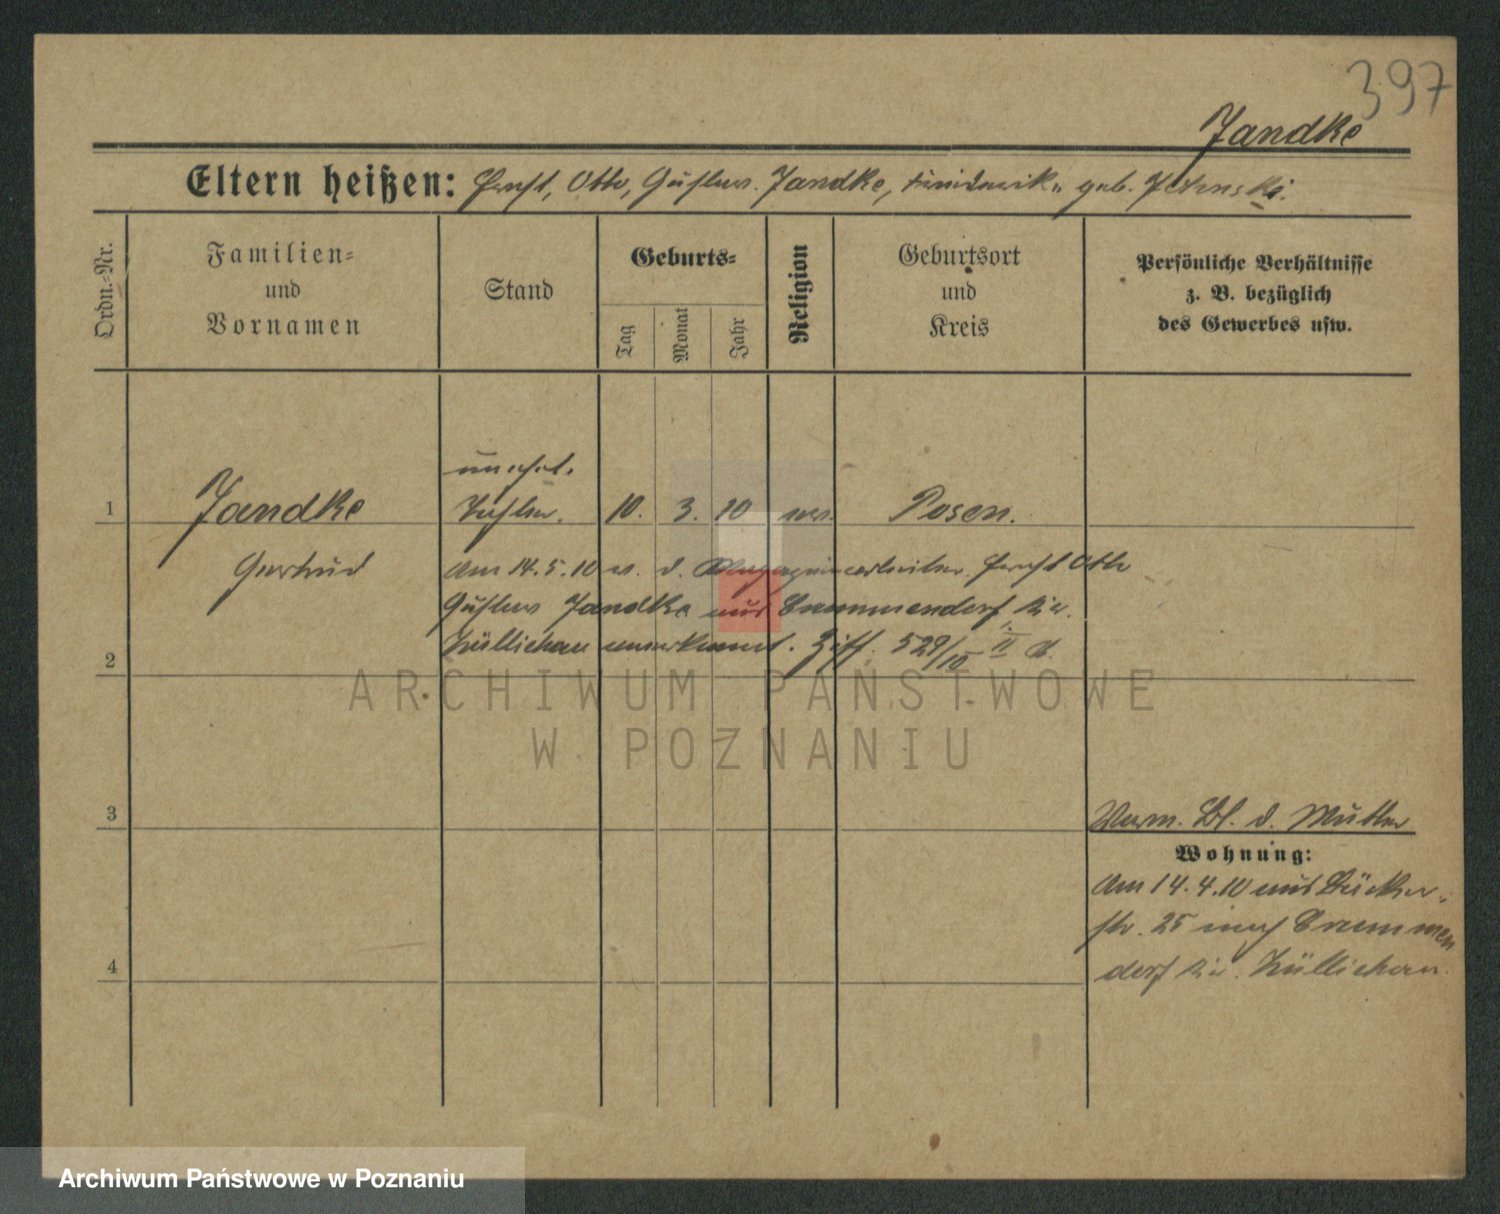 397
Jandke
Eltern heißen: Ernst, Otto, Gustav Jandke, geb.
Ordn.-Nr.
Familien=
und
Vornamen
Stand
Geburts=
Tag
Monat
Jahr
Religion
Geburtsort
und
Kreis
Persönliche Verhältnisse
z. B. bezüglich
des Gewerbes usw.
unehel.
1 Jandke Tochter. 10. 3. 10 ev. Posen.
Gertrud Am 14.5.10 v. d. Magazinarbeiter Ernst Otto
Gustav Jandke aus Crummendorf, Kr.
2 Züllichau anerkannt. 529/10 II
ARCHIWUM PAŃSTWOWE
W POZNANIU
3 Verm. Bl. d. Mutter
Wohnung:
Am 14.4.10 aus Bäcker-
str. 25 nach Crummen
4 dorf Kr. Züllichau.
Archiwum Państwowe w Poznaniu